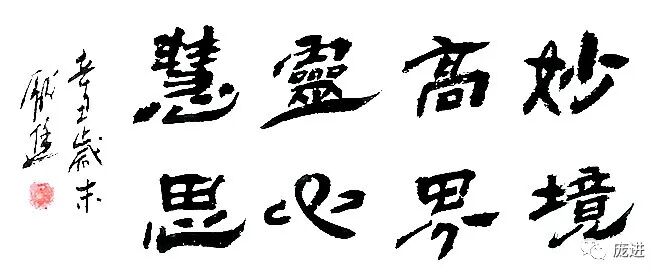 妙境
高界
靈心
慧思
辛丑歲末
庞进